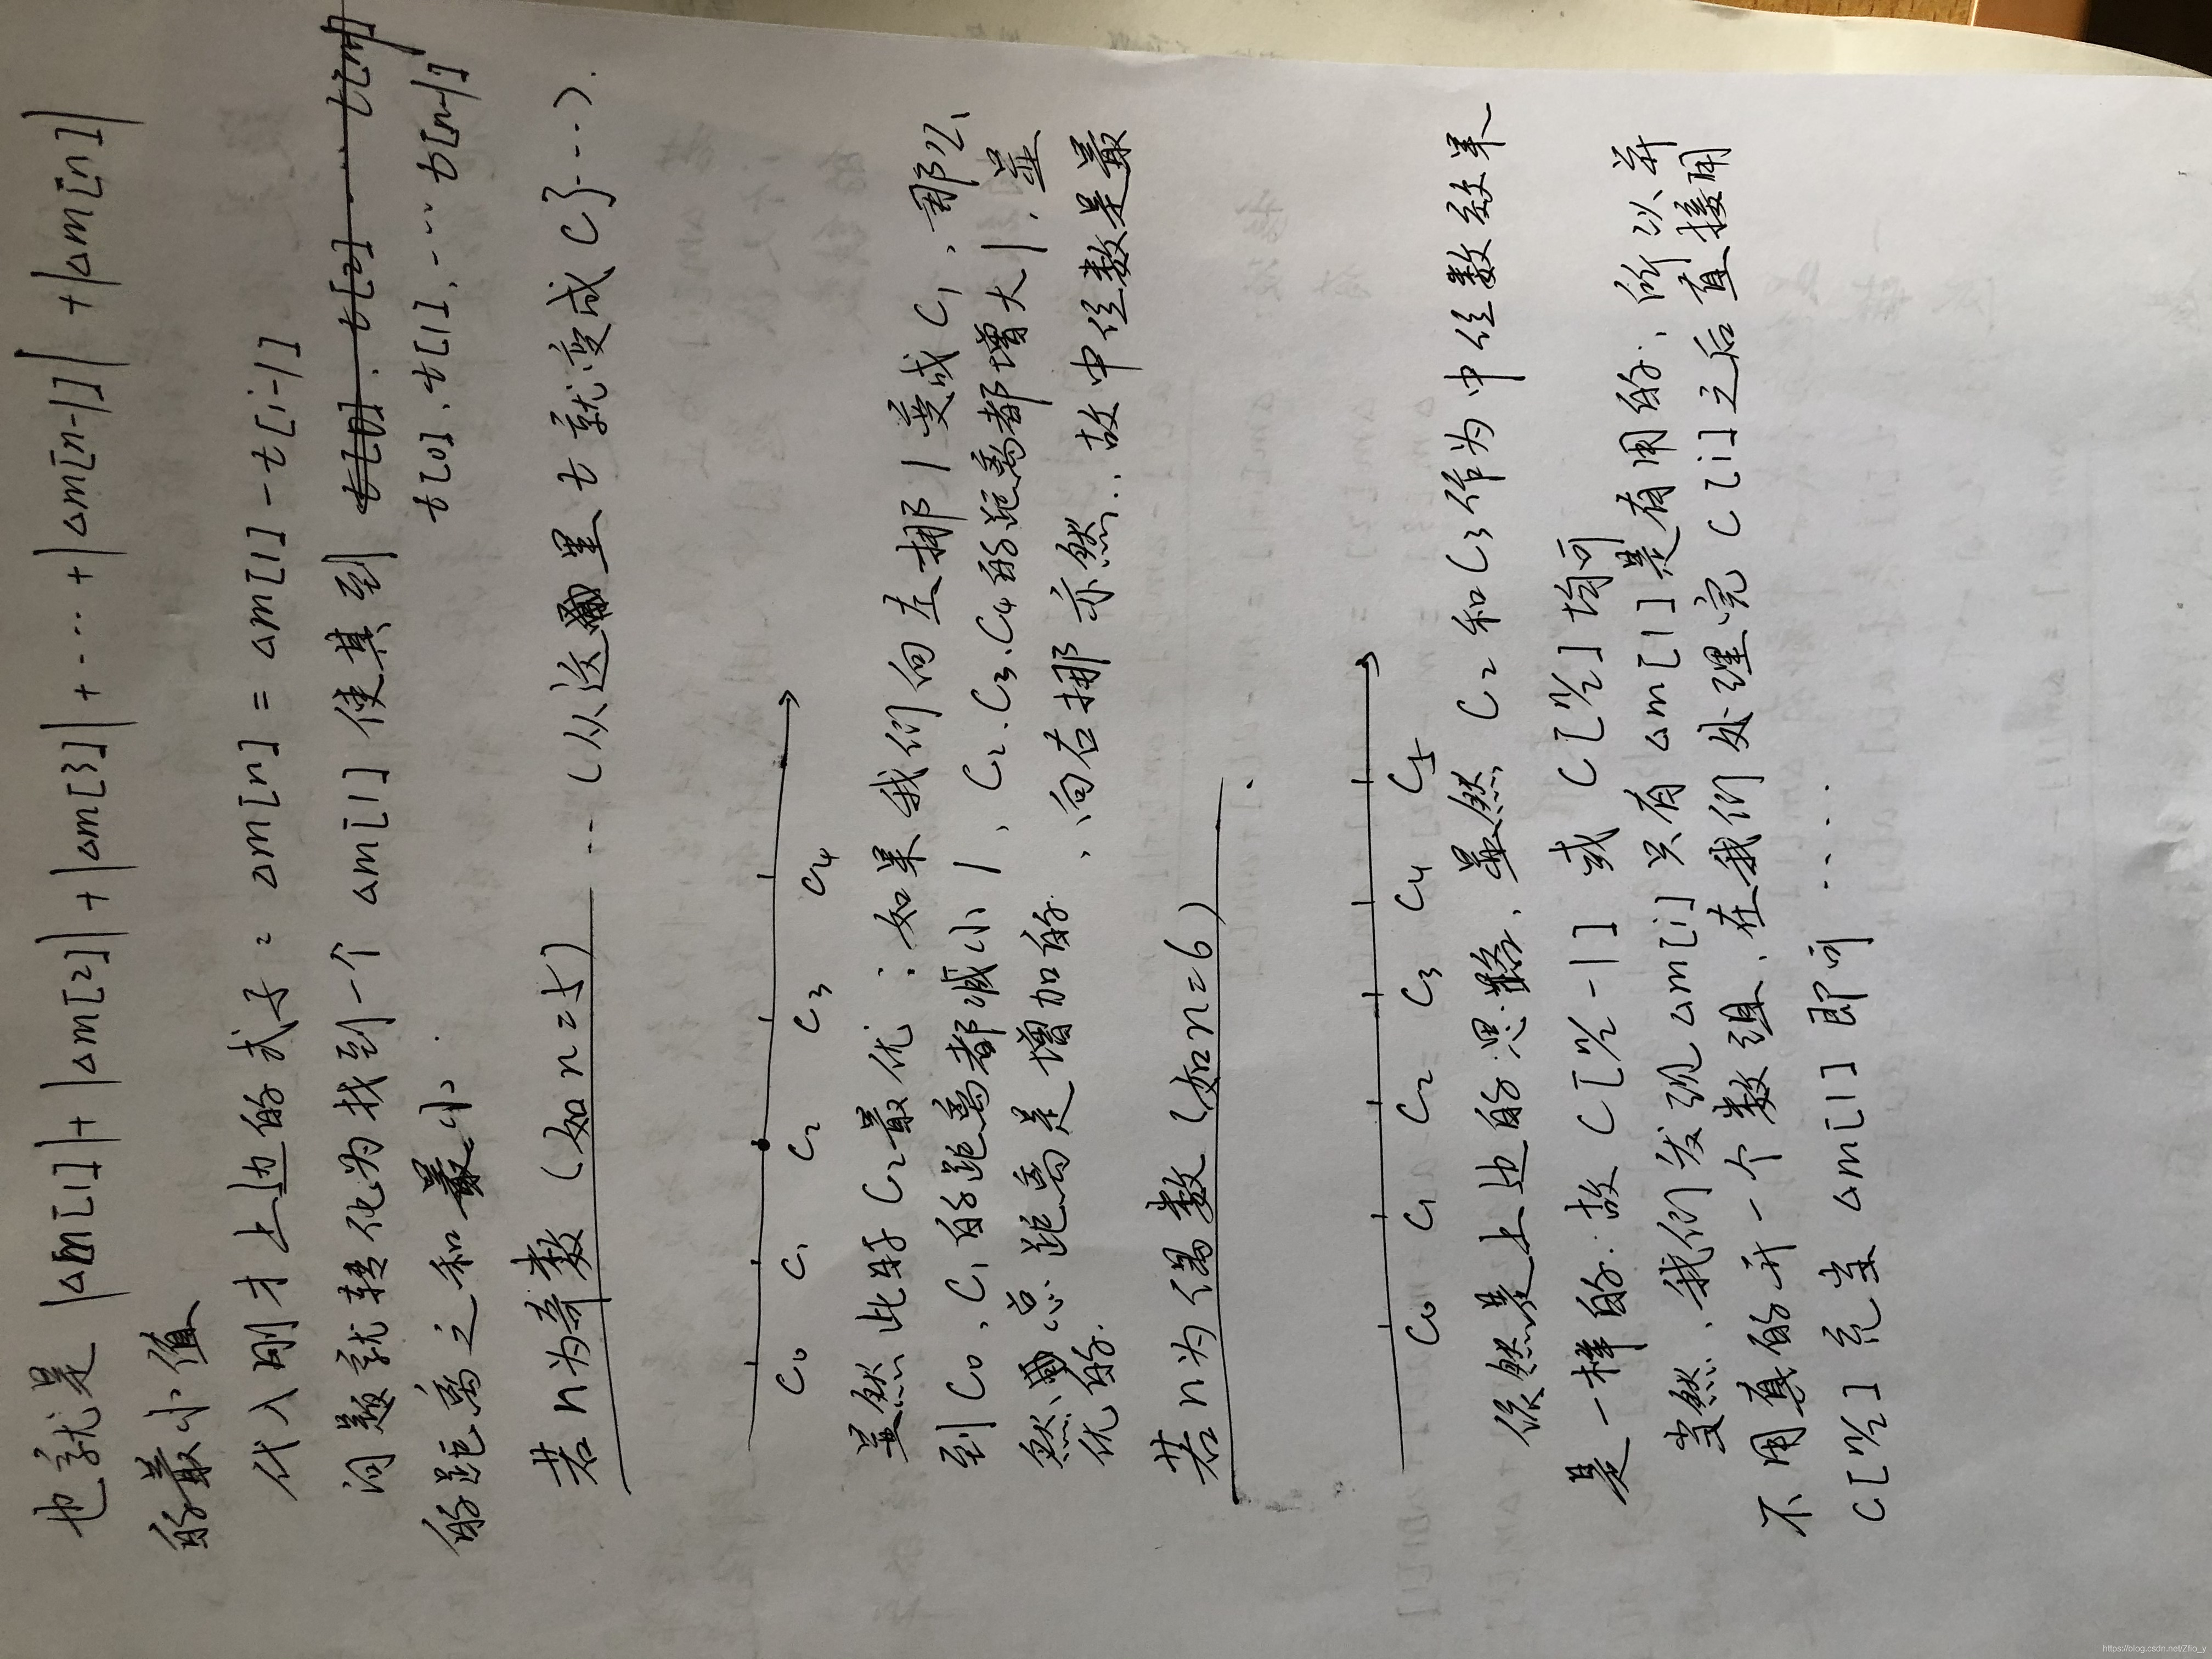 也就是 |△m[1]|+|△m[2]|+|△m[3]|+···+|△m[n-1]|+|△m[n]|
的最小值
代入刚才上边的式子: △m[n] = △m[1]-t[i-1]
问题就转化为找到一个 △m[1] 使其到 t[0]. t[2] ··· t[n]
t[0]、t[1]、··· t[n-1]
的距离之和最小.
若n为奇数 (如n=5) ··(从这里t就变成C了···).
C0 C1 C2 C3 C4
显然此时C2最优:如果我们向左挪1变成C1,那么
到C0、C1的距离都减小1、C2、C3、C4的距离都增大1,显
然总距离是增加的.、向右挪亦然..故中位数是最
优的.
若n为偶数(如n=6).
C0 C1 C2 C3 C4 C5
依然是上边的思路,显然C2和C3作为中位数效果
是一样的.故C[n/2-1]或C[n/2]均可
当然,我们发现△m[i]只有△m[1]是有用的,所以并
不用真的开一个数组、在我们处理完C[i]之后直接用
C[n/2]充当△m[1]即可....
https://blog.csdn.net/Zfio_y